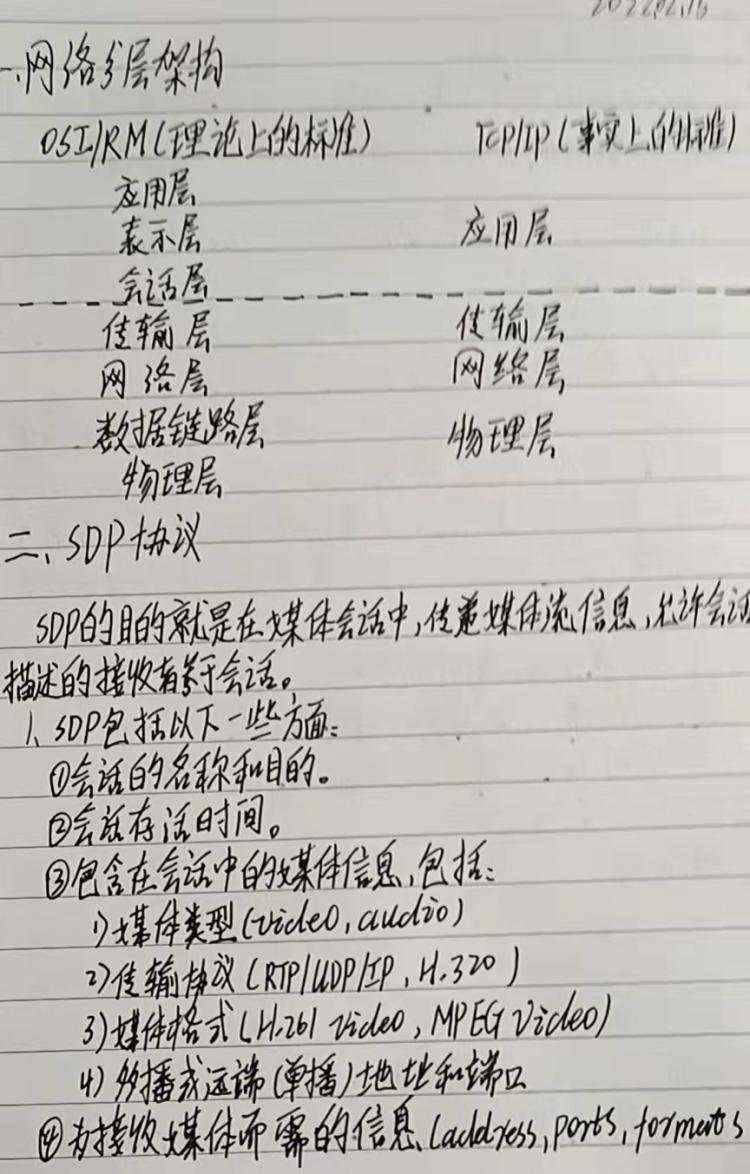 2022.02.16
一、网络分层架构
OSI/RM(理论上的标准) TCP/IP(事实上的标准)
应用层
表示层 应用层
会话层
传输层 传输层
网络层 网络层
数据链路层 物理层
物理层
二、SDP协议
SDP的目的就是在媒体会话中,传递媒体流信息,允许会话
描述的接收有关于会话。
1、SDP包括以下一些方面:
①会话的名称和目的。
②会话存活时间。
③包含在会话中的媒体信息,包括:
1)媒体类型(video,audio)
2)传输协议(RTP/UDP/IP,H.320)
3)媒体格式(H.261 video,MPEG video)
4)多播或远端(单播)地址和端口
④为接收媒体而需的信息(address,ports,formats